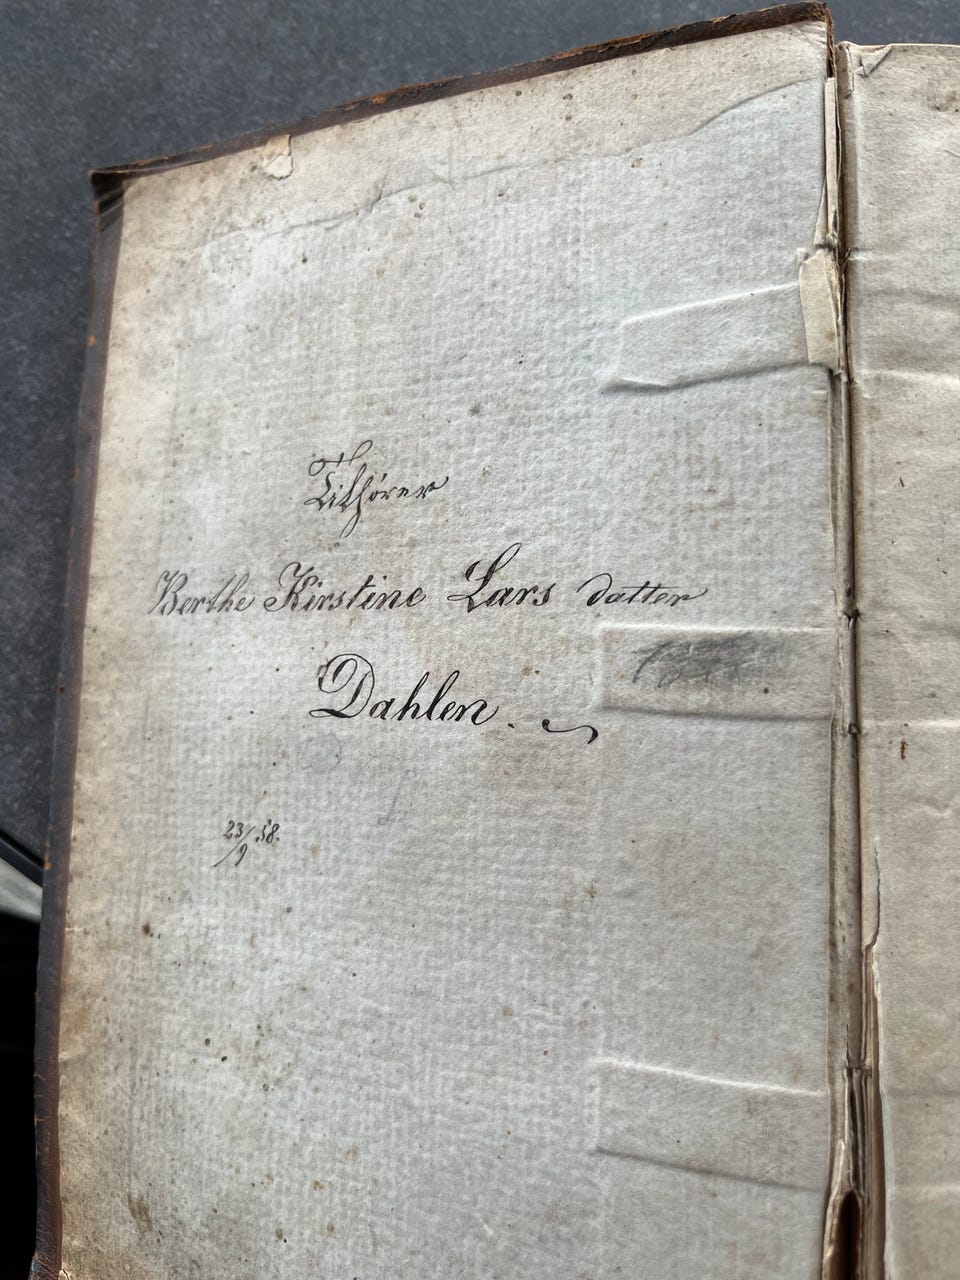 Tilhører
Berthe Kirstine Lars datter
Dahlen.
23/9 58.